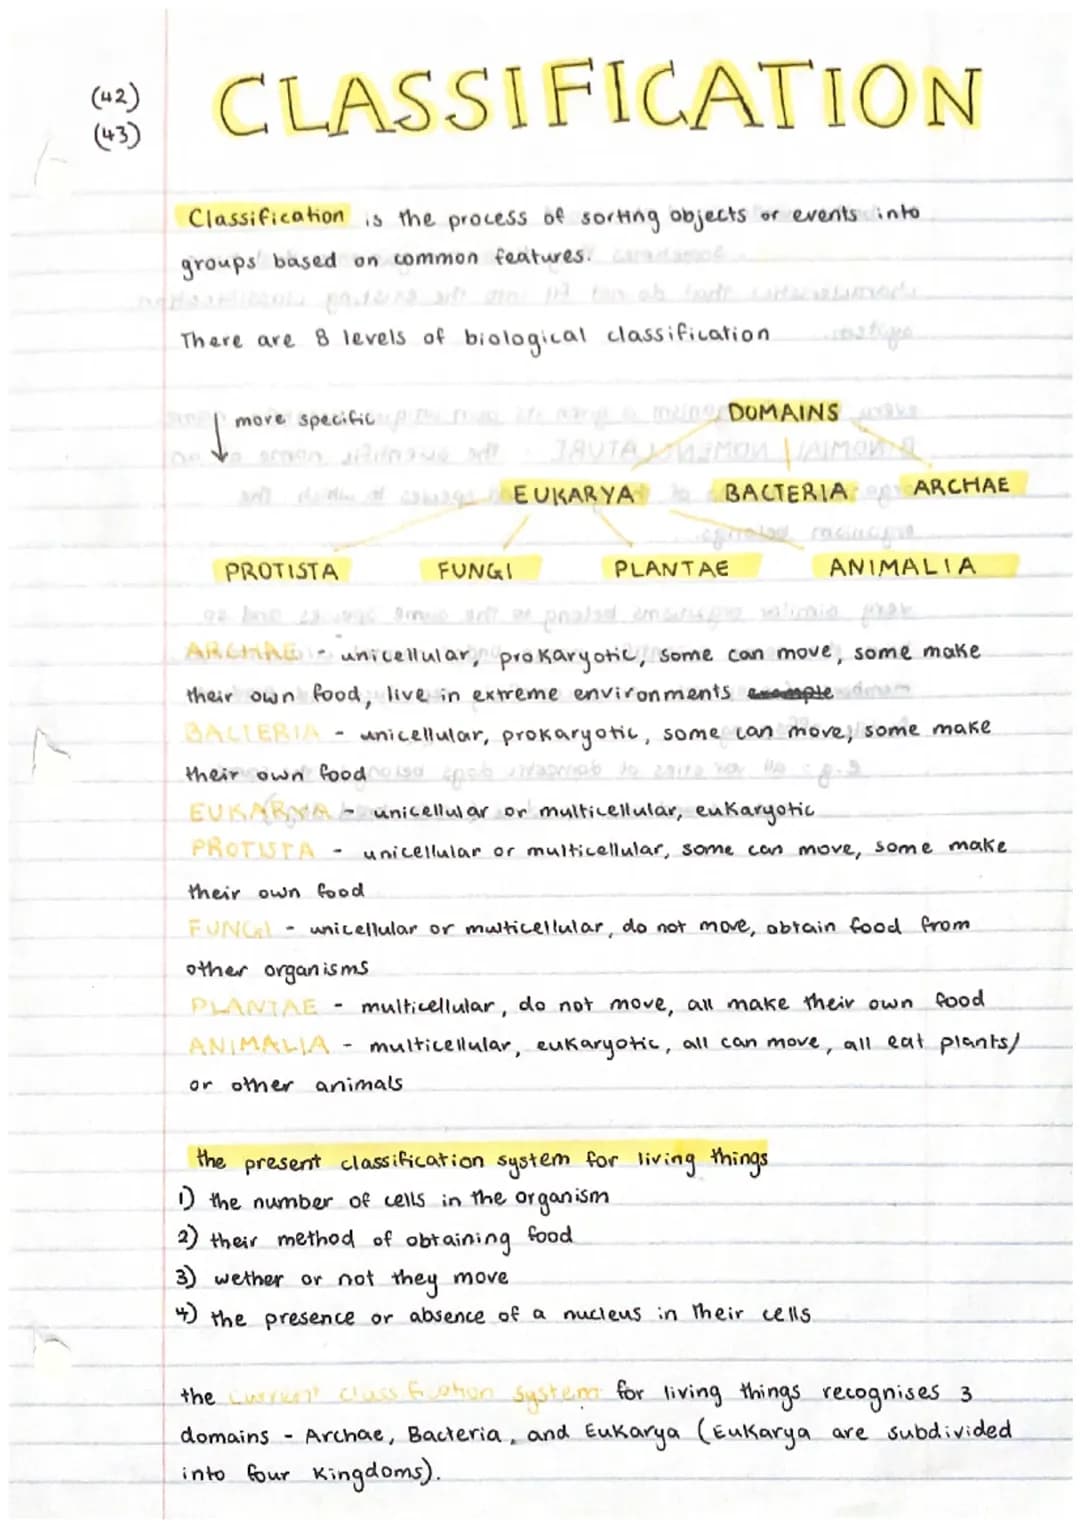 (42)
(43)
CLASSIFICATION
Classification is the process of sorting objects or events into
groups based on common features.
There are 8 levels of biological classification
more specific
DOMAINS
EUKARYA BACTERIA ARCHAE
PROTISTA FUNGI PLANTAE ANIMALIA
ARCHAE - unicellular, prokaryotic, some can move, some make
their own food, live in extreme environments example
BACTERIA - unicellular, prokaryotic, some can move, some make
their own food
EUKARYA - unicellular or multicellular, eukaryotic
PROTISTA - unicellular or multicellular, some can move, some make
their own food
FUNGI - unicellular or multicellular, do not move, obtain food from
other organisms
PLANTAE - multicellular, do not move, all make their own food
ANIMALIA - multicellular, eukaryotic, all can move, all eat plants/
or other animals
the present classification system for living things
1) the number of cells in the organism
2) their method of obtaining food
3) wether or not they move
4) the presence or absence of a nucleus in their cells
the current classification system for living things recognises 3
domains - Archae, Bacteria, and Eukarya (Eukarya are subdivided
into four kingdoms).